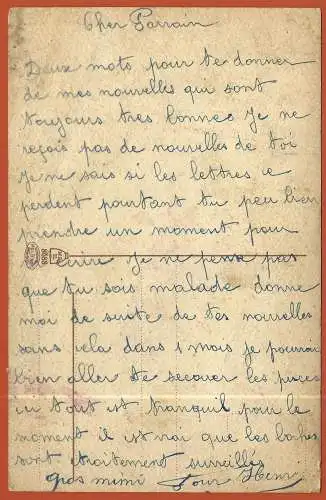 Cher Parrain
Deux mots pour te donner
de mes nouvelles qui sont
toujours tres bonnes Je ne
reçois pas de nouvelles de toi
Je ne sais si les lettres ce
perdent pourtant tu peu bien
prendre un moment pour
écrire Je ne pense pas
que tu sois malade donne
moi de suite de tes nouvelles
sans cela dans 1 mois je pourrai
bien aller te secouer les puces
ici tout est tranquil pour le
moment il est vrai que les boches
sont étroitement surveillés
gros mimi Henri